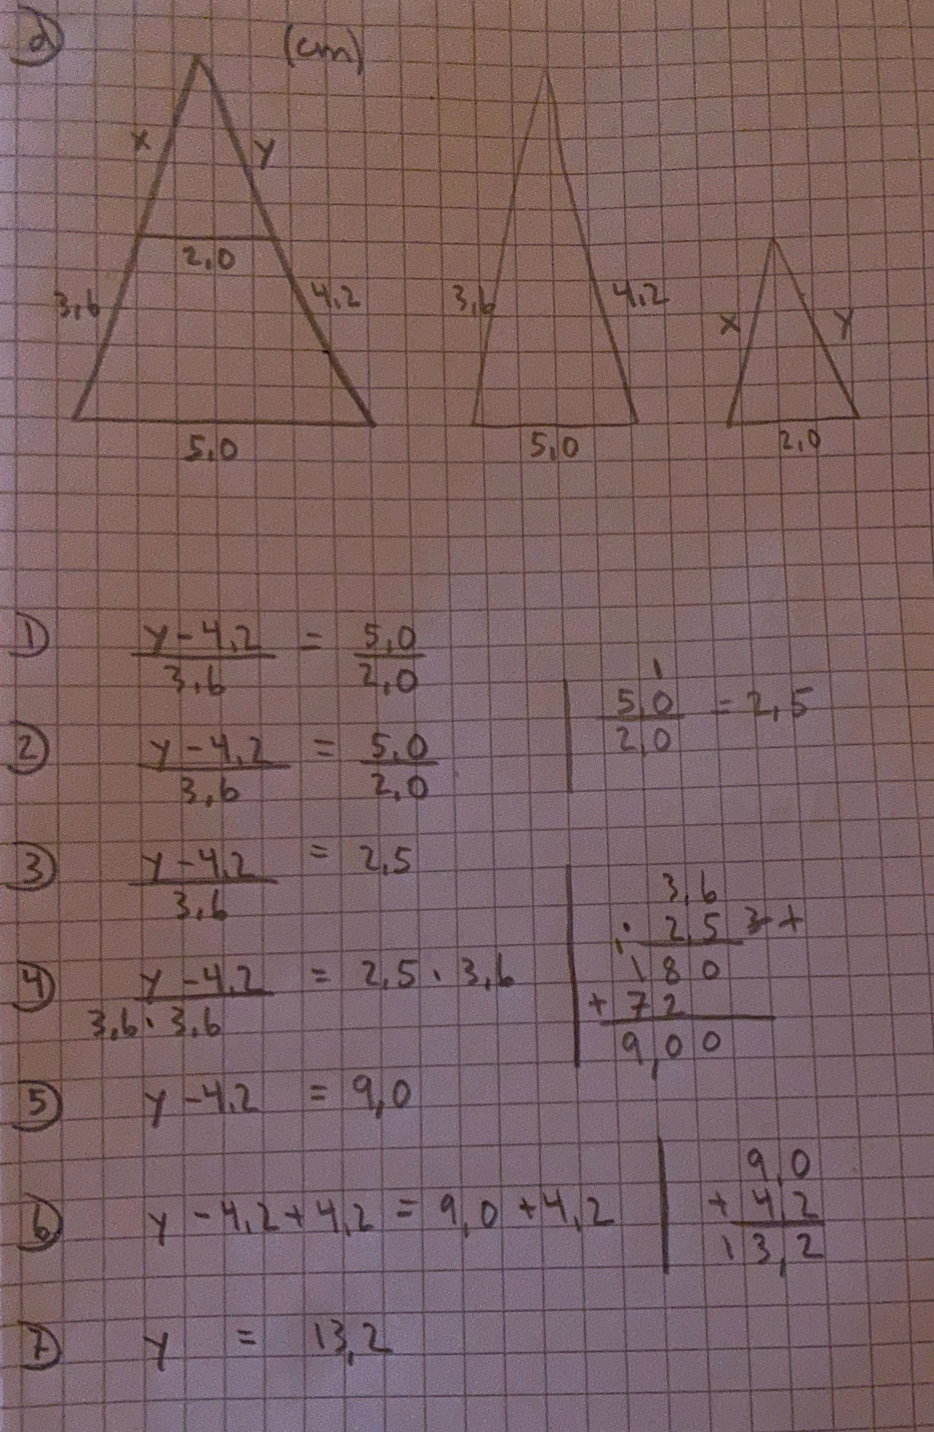 d) (cm)
x y
2,0
3,6 4,2
5,0
3,6 4,2
5,0
x y
2,0
① y-4,2 / 3,6 = 5,0 / 2,0
② y-4,2 / 3,6 = 5,0 / 2,0
1
5,0 / 2,0 = 2,5
③ y-4,2 / 3,6 = 2,5
④ y-4,2 / 3,6 · 3,6 = 2,5 · 3,6
3,6
· 2,5
180
+ 72
9,00
⑤ y-4,2 = 9,0
⑥ y-4,2+4,2 = 9,0+4,2
9,0
+ 4,2
13,2
⑦ y = 13,2